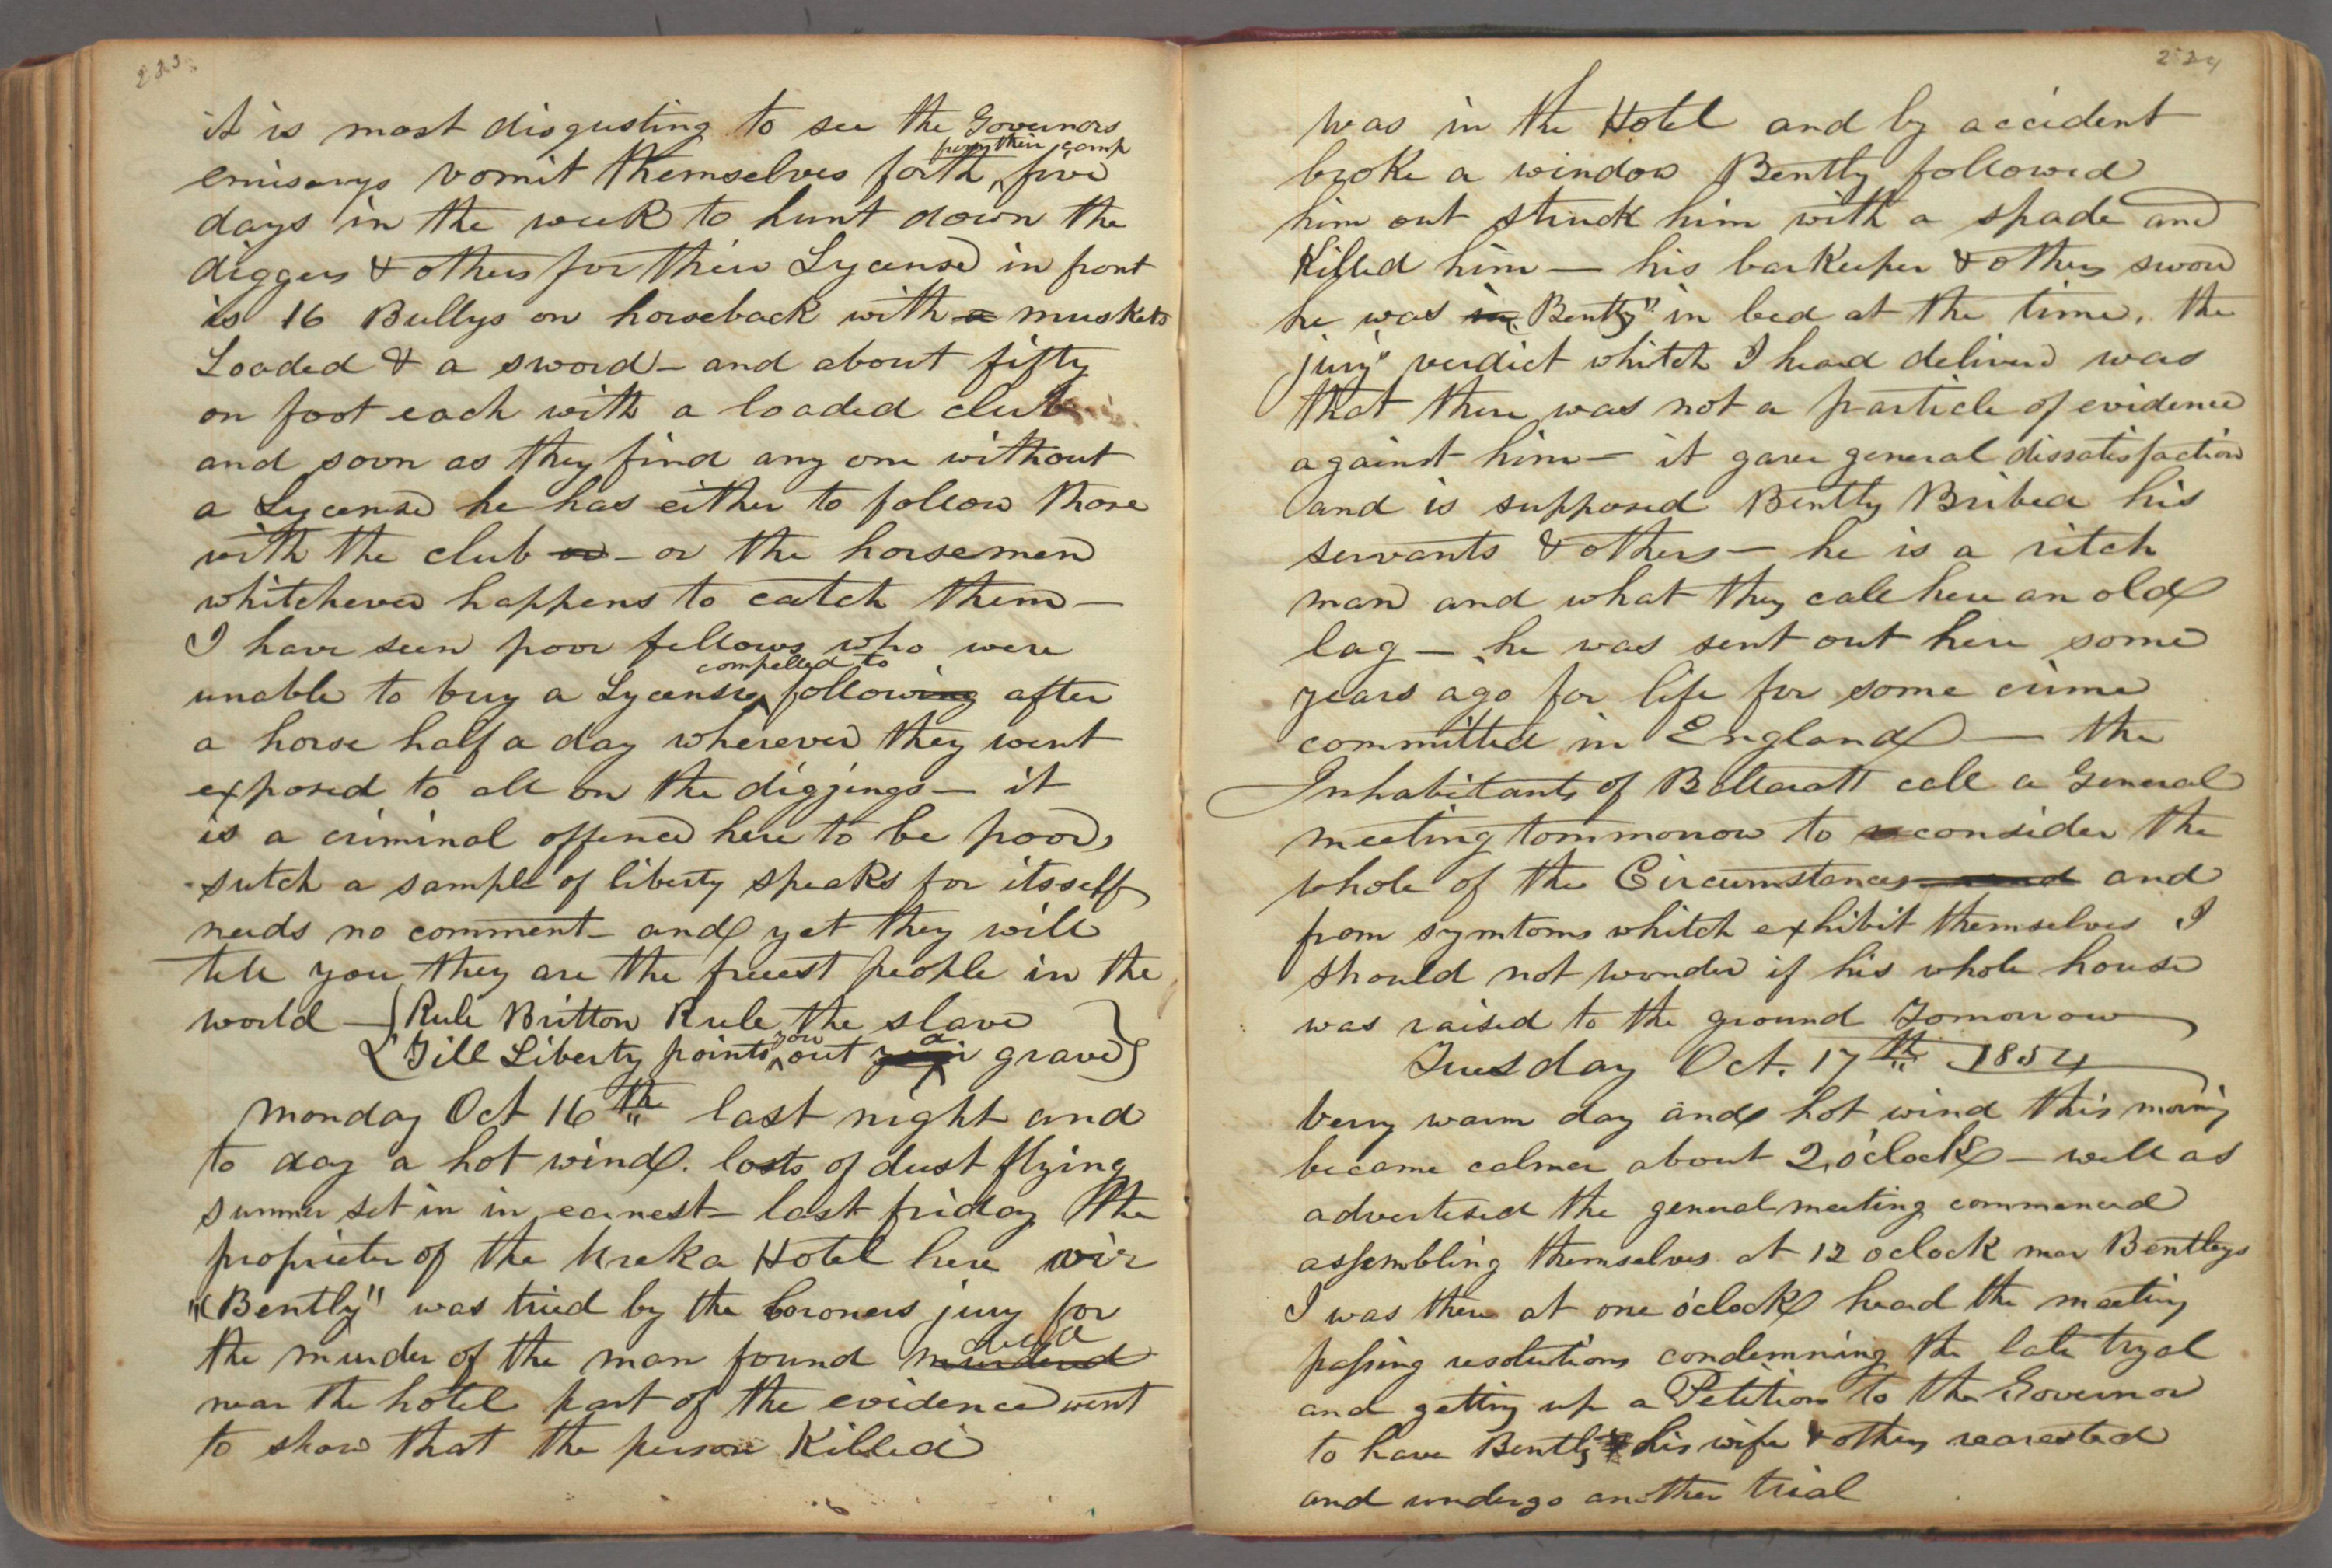 233
it is most disgusting to see the Governors
emisarys vomit themselves forth from their camp five
days in the week to hunt down the
diggers & others for their Lycense in front
is 16 Bullys on horseback with a muskets
Loaded & a sword - and about fifty
on foot each with a loaded club
and soon as they find any one without
a Lycense he has either to follow those
with the club or - or the horsemen
whitchever happens to catch them -
I have seen poor fellows who were
unable to buy a Lycense compelled to following after
a horse half a day wherever they went
exposed to all on the diggings - it
is a criminal offence here to be poor,
sutch a sample of liberty speaks for itsself
needs no comment - and yet they will
tell you they are the freest people in the
world - { Rule Britton Rule, the slave }
{ Till Liberty points you out a grave }
Monday Oct 16th last night and
to day a hot wind. losts of dust flying
summer set in in earnest - last friday the
proprietor of the Ureka Hotel here viz
"Bently" was tried by the Coroners jury for
the murder of the man found murdered dead
near the hotel part of the evidence went
to show that the person Killed
234
was in the Hotel and by accident
broke a window Bently followed
him out struck him with a spade and
Killed him - his barkeeper & others swore
he was in "Bently" in bed at the time, the
jury's verdict whitch I heard deliverd was
that there was not a particle of evidence
against him - it gave general dissatisfaction
and is supposed Bently Bribed his
servants & others - he is a ritch
man and what they call here an old
lag - he was sent out here some
years ago for life for some crime
committed in England - the
Inhabitants of Ballaratt call a General
meeting tommorrow to consider the
whole of the Circumstances and and
from symtoms whitch exhibit themselves I
should not wonder if his whole house
was raised to the ground Tomorrow
Tuesday Oct. 17th 1854
very warm day and hot wind this morning
became calmer about 2, o'clock - well as
advertised the general meeting commenced
assembling themselves at 12 oclock near Bentleys
I was there at one o'clock heard the meeting
passing resolutions condemning the late tryal
and getting up a Petition to the Governor
to have Bently & his wife & others rearested
and undergo another trial